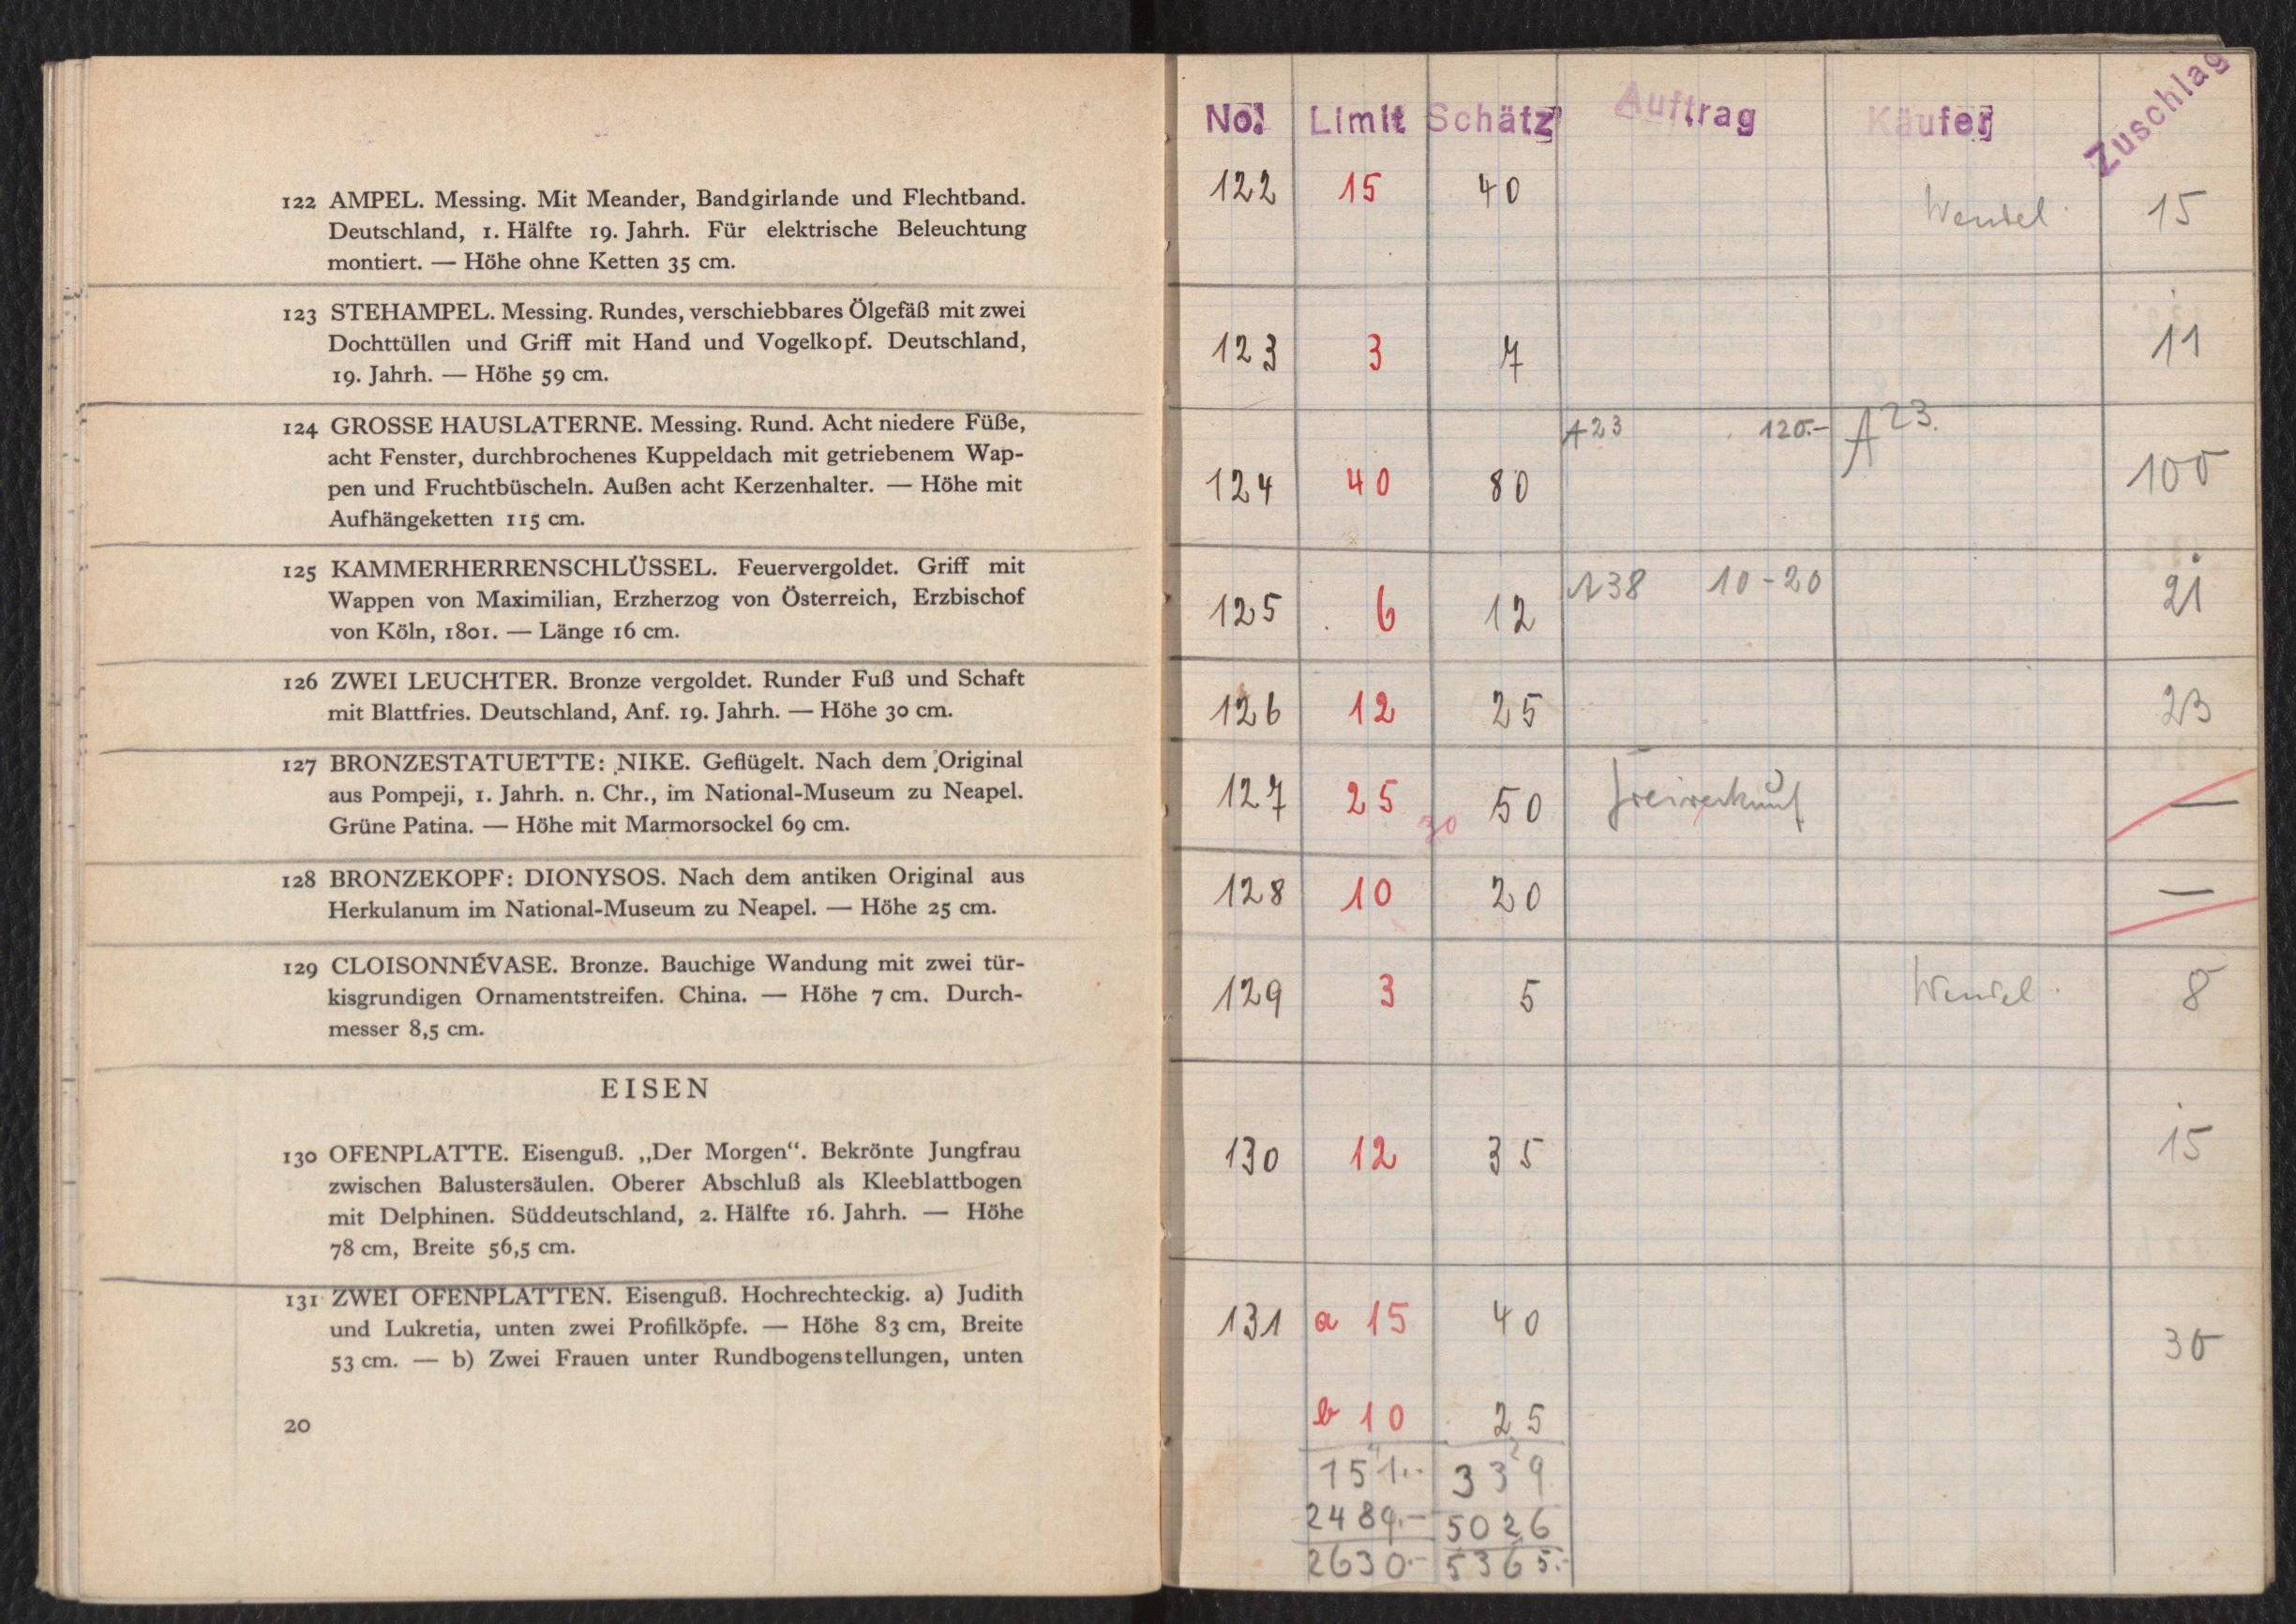 122 AMPEL. Messing. Mit Meander, Bandgirlande und Flechtband.
Deutschland, 1. Hälfte 19. Jahrh. Für elektrische Beleuchtung
montiert. — Höhe ohne Ketten 35 cm.
123 STEHAMPEL. Messing. Rundes, verschiebbares Ölgefäß mit zwei
Dochttüllen und Griff mit Hand und Vogelkopf. Deutschland,
19. Jahrh. — Höhe 59 cm.
124 GROSSE HAUSLATERNE. Messing. Rund. Acht niedere Füße,
acht Fenster, durchbrochenes Kuppeldach mit getriebenem Wap-
pen und Fruchtbüscheln. Außen acht Kerzenhalter. — Höhe mit
Aufhängeketten 115 cm.
125 KAMMERHERRENSCHLÜSSEL. Feuervergoldet. Griff mit
Wappen von Maximilian, Erzherzog von Österreich, Erzbischof
von Köln, 1801. — Länge 16 cm.
126 ZWEI LEUCHTER. Bronze vergoldet. Runder Fuß und Schaft
mit Blattfries. Deutschland, Anf. 19. Jahrh. — Höhe 30 cm.
127 BRONZESTATUETTE: NIKE. Geflügelt. Nach dem Original
aus Pompeji, 1. Jahrh. n. Chr., im National-Museum zu Neapel.
Grüne Patina. — Höhe mit Marmorsockel 69 cm.
128 BRONZEKOPF: DIONYSOS. Nach dem antiken Original aus
Herkulanum im National-Museum zu Neapel. — Höhe 25 cm.
129 CLOISONNÉVASE. Bronze. Bauchige Wandung mit zwei tür-
kisgrundigen Ornamentstreifen. China. — Höhe 7 cm. Durch-
messer 8,5 cm.
EISEN
130 OFENPLATTE. Eisenguß. „Der Morgen“. Bekrönte Jungfrau
zwischen Balustersäulen. Oberer Abschluß als Kleeblattbogen
mit Delphinen. Süddeutschland, 2. Hälfte 16. Jahrh. — Höhe
78 cm, Breite 56,5 cm.
131 ZWEI OFENPLATTEN. Eisenguß. Hochrechteckig. a) Judith
und Lukretia, unten zwei Profilköpfe. — Höhe 83 cm, Breite
53 cm. — b) Zwei Frauen unter Rundbogenstellungen, unten
20
No. Limit Schätz Auftrag Käufer Zuschlag
122 15 40 Wendel 15
123 3 7 11
124 40 80 A 23 120.- A 23. 100
125 6 12 A 38 10-20 21
126 12 25 23
127 25 30 50 Freiverkauf —
128 10 20 —
129 3 5 Wendel 8
130 12 35 15
131 a 15 40 30
b 10 25
151.- 339
2489.- 5026
2630.- 5365.-